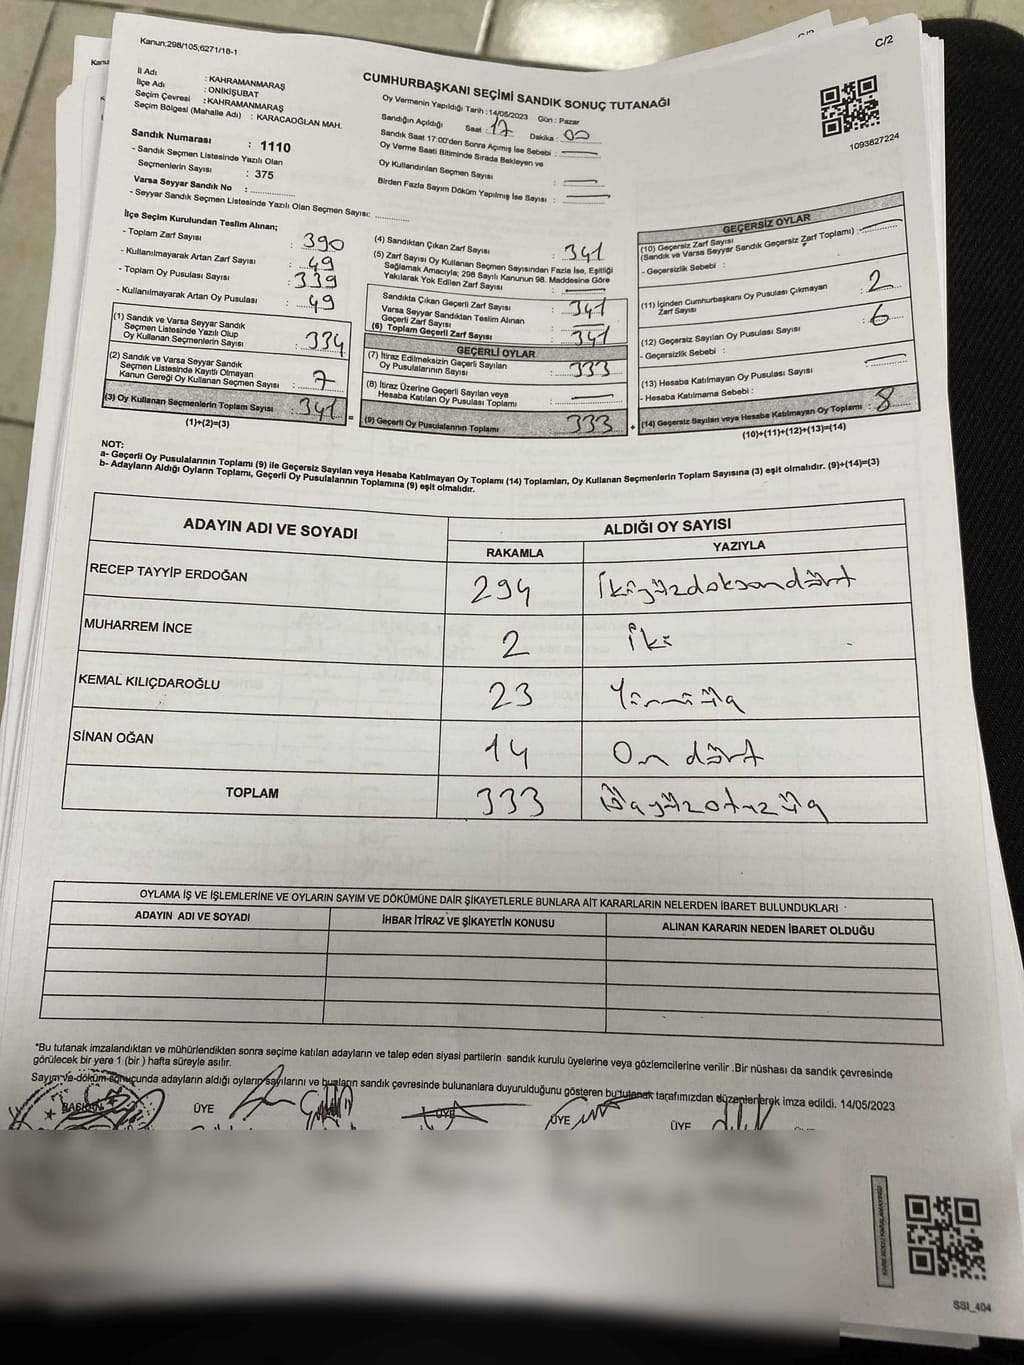 Kanun;298/105,6271/18-1
C/2
İl Adı : KAHRAMANMARAŞ
İlçe Adı : ONİKİŞUBAT
Seçim Çevresi : KAHRAMANMARAŞ
Seçim Bölgesi (Mahalle Adı) : KARACAOĞLAN MAH.
Sandık Numarası : 1110
- Sandık Seçmen Listesinde Yazılı Olan
Seçmenlerin Sayısı : 375
Varsa Seyyar Sandık No :
- Seyyar Sandık Seçmen Listesinde Yazılı Olan Seçmen Sayısı:
CUMHURBAŞKANI SEÇİMİ SANDIK SONUÇ TUTANAĞI
Oy Vermenin Yapıldığı Tarih :14/05/2023 Gün : Pazar
Sandığın Açıldığı Saat : 17 Dakika : 00
Sandık Saat 17:00'den Sonra Açımış İse Sebebi :
Oy Verme Saati Bitiminde Sırada Bekleyen ve
Oy Kullandırılan Seçmen Sayısı :
Birden Fazla Sayım Döküm Yapılmış İse Sayısı :
1093827224
İlçe Seçim Kurulundan Teslim Alınan;
- Toplam Zarf Sayısı : 390
- Kullanılmayarak Artan Zarf Sayısı : 49
- Toplam Oy Pusulası Sayısı : 339
- Kullanılmayarak Artan Oy Pusulası : 49
(1) Sandık ve Varsa Seyyar Sandık
Seçmen Listesinde Yazılı Olup
Oy Kullanan Seçmenlerin Sayısı : 334
(2) Sandık ve Varsa Seyyar Sandık
Seçmen Listesinde Kayıtlı Olmayan
Kanun Gereği Oy Kullanan Seçmen Sayısı : 7
(3) Oy Kullanan Seçmenlerin Toplam Sayısı : 341
(1)+(2)=(3)
=
(4) Sandıktan Çıkan Zarf Sayısı : 341
(5) Zarf Sayısı Oy Kullanan Seçmen Sayısından Fazla İse, Eşitliği
Sağlamak Amacıyla; 298 Sayılı Kanunun 98. Maddesine Göre
Yakılarak Yok Edilen Zarf Sayısı :
Sandıkta Çıkan Geçerli Zarf Sayısı : 341
Varsa Seyyar Sandıktan Teslim Alınan
Geçerli Zarf Sayısı :
(6) Toplam Geçerli Zarf Sayısı : 341
GEÇERLİ OYLAR
(7) İtiraz Edilmeksizin Geçerli Sayılan
Oy Pusulalarının Sayısı : 333
(8) İtiraz Üzerine Geçerli Sayılan veya
Hesaba Katılan Oy Pusulası Toplamı :
(9) Geçerli Oy Pusulalarının Toplamı : 333
+
GEÇERSİZ OYLAR
(10) Geçersiz Zarf Sayısı
(Sandık ve Varsa Seyyar Sandık Geçersiz Zarf Toplamı) :
- Geçersizlik Sebebi :
(11) İçinden Cumhurbaşkanı Oy Pusulası Çıkmayan
Zarf Sayısı : 2
(12) Geçersiz Sayılan Oy Pusulası Sayısı : 6
- Geçersizlik Sebebi :
(13) Hesaba Katılmayan Oy Pusulası Sayısı :
- Hesaba Katılmama Sebebi :
(14) Geçersiz Sayılan veya Hesaba Katılmayan Oy Toplamı : 8
(10)+(11)+(12)+(13)=(14)
NOT:
a- Geçerli Oy Pusulalarının Toplamı (9) ile Geçersiz Sayılan veya Hesaba Katılmayan Oy Toplamı (14) Toplamları, Oy Kullanan Seçmenlerin Toplam Sayısına (3) eşit olmalıdır. (9)+(14)=(3)
b- Adayların Aldığı Oyların Toplamı, Geçerli Oy Pusulalarının Toplamına (9) eşit olmalıdır.
ADAYIN ADI VE SOYADI ALDIĞI OY SAYISI
RAKAMLA YAZIYLA
RECEP TAYYİP ERDOĞAN 294 İkiyüzdoksandört
MUHARREM İNCE 2 İki
KEMAL KILIÇDAROĞLU 23 Yirmiüç
SİNAN OĞAN 14 On dört
TOPLAM 333 Üçyüzotuzüç
OYLAMA İŞ VE İŞLEMLERİNE VE OYLARIN SAYIM VE DÖKÜMÜNE DAİR ŞİKAYETLERLE BUNLARA AİT KARARLARIN NELERDEN İBARET BULUNDUKLARI
ADAYIN ADI VE SOYADI İHBAR İTİRAZ VE ŞİKAYETİN KONUSU ALINAN KARARIN NEDEN İBARET OLDUĞU
*Bu tutanak imzalandıktan ve mühürlendikten sonra seçime katılan adayların ve talep eden siyasi partilerin sandık kurulu üyelerine veya gözlemcilerine verilir .Bir nüshası da sandık çevresinde
görülecek bir yere 1 (bir ) hafta süreyle asılır.
Sayım ve döküm sonuçunda adayların aldığı oyların sayılarını ve bunların sandık çevresinde bulunanlara duyurulduğunu gösteren bu tutanak tarafımızdan düzenlenerek imza edildi. 14/05/2023
BAŞKAN ÜYE ÜYE ÜYE ÜYE
SSI_404